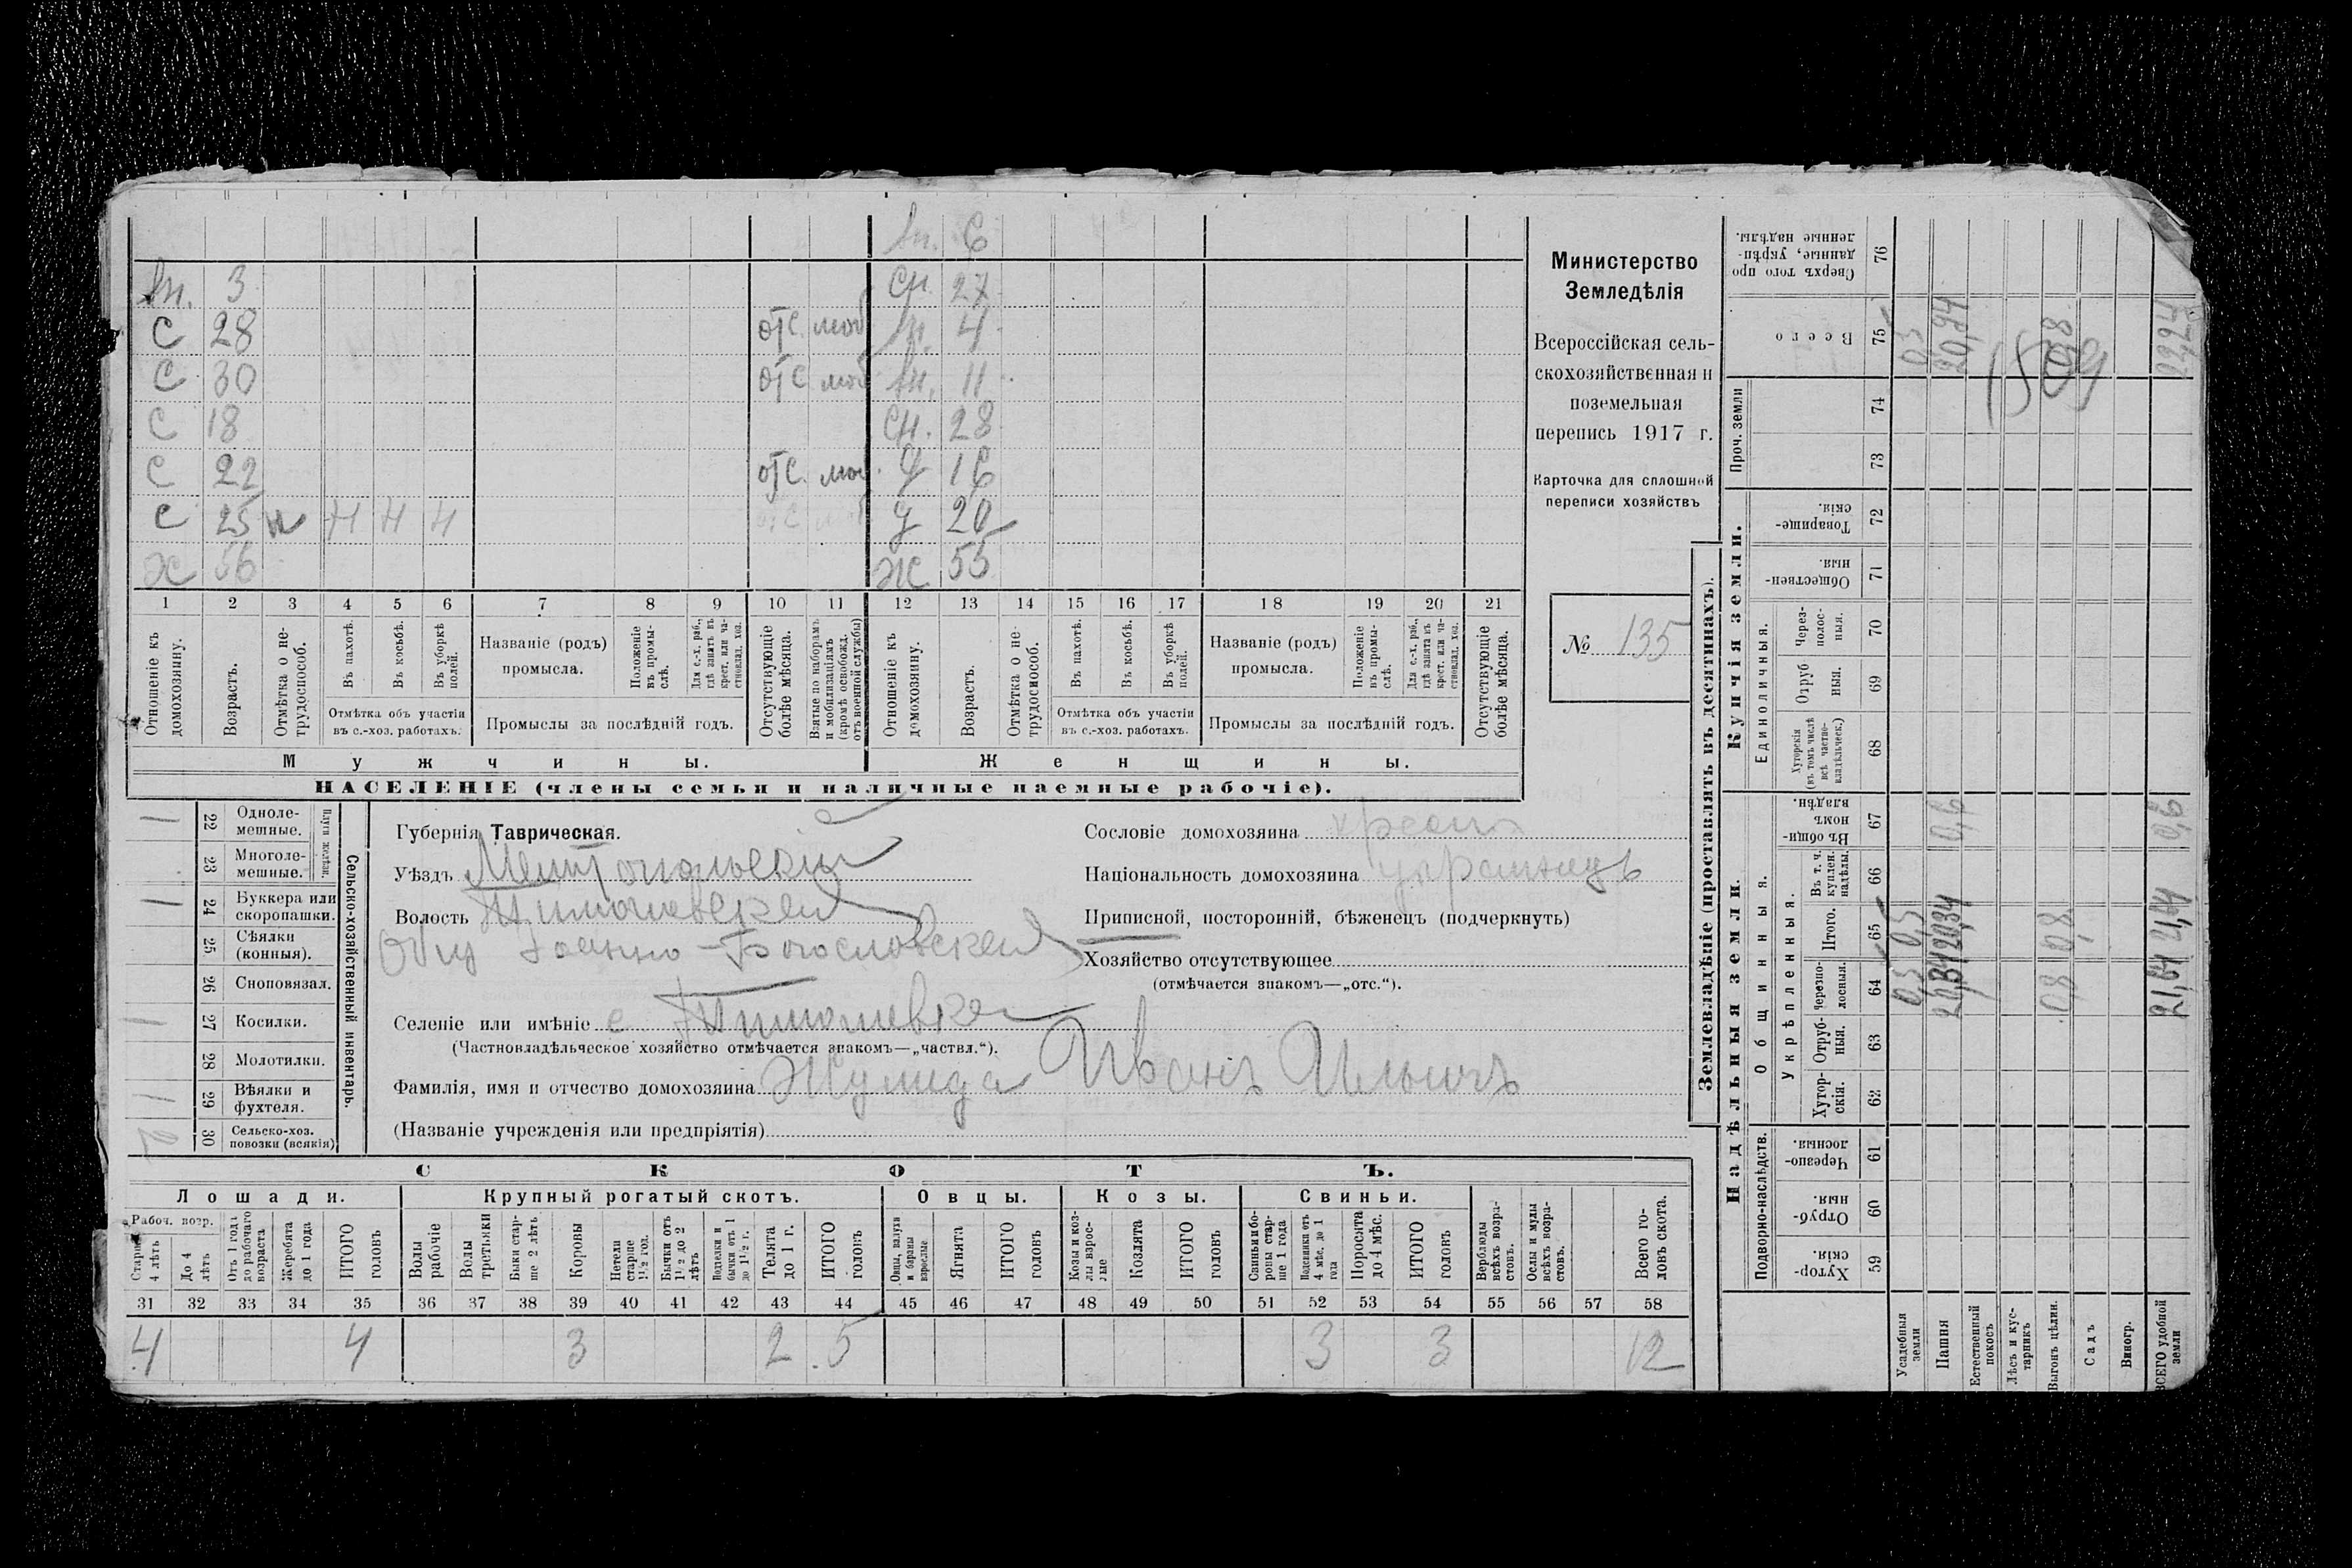 вн. 6
вн. 3 сн. 27
с 28 отс. моб вн. 4
с 30 отс моб вн. 11
с 18 сн. 28
с 22 отс. моб. д 16
с 25 н н н н отс моб д 20
ж 56 ж 55
1 2 3 4 5 6 7 8 9 10 11 12 13 14 15 16 17 18 19 20 21
Отношеніе къ домохозяину.
Возрастъ.
Отмѣтка о нетрудоспособ.
Въ пахотѣ.
Въ косьбѣ.
Въ уборкѣ полей.
Отмѣтка объ участіи
въ с.-хоз. работахъ.
Названіе (родъ)
промысла.
Положеніе въ промыслѣ.
Для с.-х. раб., гдѣ занятъ въ крест. или частновлад. хоз.
Промыслы за послѣдній годъ.
Отсутствующіе болѣе мѣсяца.
Взятые по наборамъ и мобилизаціямъ (кромѣ освобожд. отъ военной службы)
Отношеніе къ домохозяину.
Возрастъ.
Отмѣтка о нетрудоспособ.
Въ пахотѣ.
Въ косьбѣ.
Въ уборкѣ полей.
Отмѣтка объ участіи
въ с.-хоз. работахъ.
Названіе (родъ)
промысла.
Положеніе въ промыслѣ.
Для с.-х. раб., гдѣ занята въ крест. или частновлад. хоз.
Промыслы за послѣдній годъ.
Отсутствующіе болѣе мѣсяца.
Мужчины. Женщины.
НАСЕЛЕНІЕ (члены семьи и наличные наемные рабочіе).
Министерство
Земледѣлія
Всероссійская сель-
скохозяйственная и
поземельная
перепись 1917 г.
Карточка для сплошной
переписи хозяйствъ
№ 135
Плуги желѣзн.
1 22 Одноле-
мешные.
23 Многоле-
мешные.
1 24 Буккера или
скоропашки.
25 Сѣялки
(конныя).
26 Сноповязал.
1 27 Косилки.
28 Молотилки.
1 29 Вѣялки и
фухтеля.
2 30 Сельско-хоз.
повозки (всякія)
Сельско-хозяйственный инвентарь.
Губернія Таврическая.
Уѣздъ Мелитопольскій
Волость Тимошевская
Общ Іоанно-Богословская
Селеніе или имѣніе с Тимошевка
(Частновладѣльческое хозяйство отмѣчается знакомъ—„частвл.“).
Фамилія, имя и отчество домохозяина Жулида Иванъ Ильичъ
(Названіе учрежденія или предпріятія)
Сословіе домохозяина
Національность домохозяина украинецъ
Приписной, посторонній, бѣженецъ (подчеркнуть)
Хозяйство отсутствующее
(отмѣчается знакомъ—„отс.“).
СКОТЪ.
Лошади. Крупный рогатый скотъ. Овцы. Козы. Свиньи.
Рабоч. возр.
Старше 4 лѣтъ
До 4 лѣтъ
Отъ 1 года до рабочаго возраста
Жеребята до 1 года
ИТОГО головъ
Волы рабочіе
Волы третьяки
Быки старше 2 лѣтъ
Коровы
Нетели старше 1½ год.
Бычки отъ 1½ до 2 лѣтъ
бычки отъ 1 до 1½ г.
Телята до 1 г.
ИТОГО головъ
Овцы, валухи и бараны взрослые
Ягнята
ИТОГО головъ
Козы и козлы взрослые
Козлята
ИТОГО головъ
Свиньи и боровы старше 1 года
Подсвинки отъ 4 мѣс. до 1 года
Поросята до 4 мѣс.
ИТОГО головъ
Верблюды всѣхъ возрастовъ.
Ослы и мулы всѣхъ возрастовъ.
Всего головъ скота.
31 32 33 34 35 36 37 38 39 40 41 42 43 44 45 46 47 48 49 50 51 52 53 54 55 56 57 58
4 4 3 2 5 3 3 12
Землевладѣніе (проставлять въ десятинахъ).
Надѣльныя земли.
Купчія земли.
Проч. земли
Подворно-наслѣдств.
Общинныя.
Укрѣпленныя.
Единоличныя.
Хуторскія. 59
Отрубныя. 60
Черезполосныя. 61
Хуторскія. 62
Отрубныя. 63
Черезполосныя. 64
Итого. 65
Въ т. ч. куплен. надѣлы. 66
Въ общинномъ владѣн. 67
Хуторскія (въ томъ числѣ всѣ частновладѣльческ.) 68
Отрубныя. 69
Черезполосныя. 70
Общественныя. 71
Товарищескія. 72
73
74
Всего 75
Сверхъ того проданные, укрѣпленные надѣлы. 76
Усадебныя земли 0,5 0,5 0,5
Пашня 20,34 20,34 0,6 20,94
Естественный покосъ
Лѣсъ и кустарникъ
Выгонъ цѣлин. 0,8 0,8 0,8
Садъ
Виногр.
ВСЕГО удобной земли 21,64 21,64 0,6